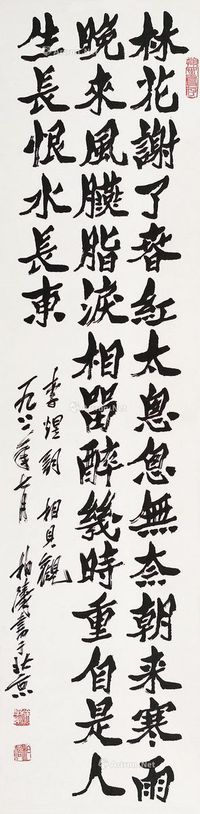 林花謝了春紅太怱怱無奈朝来寒雨
晚來風臙脂淚相留醉幾時重自是人
生長恨水長東
李煜詞 相見歡
一九八二年七月 書于北京